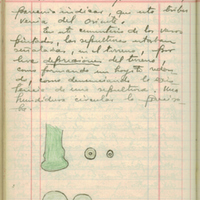 parecía indicar, que esta tribu
venía del oriente.
En este cementerio de los vasos
pintados, las sepulturas estaban
señaladas, en el terreno, por
leve depresiones del terreno
como formando un hoyito redon
do, como denunciando la exis
tencia de una sepultura. Ese
hundidito circular lo